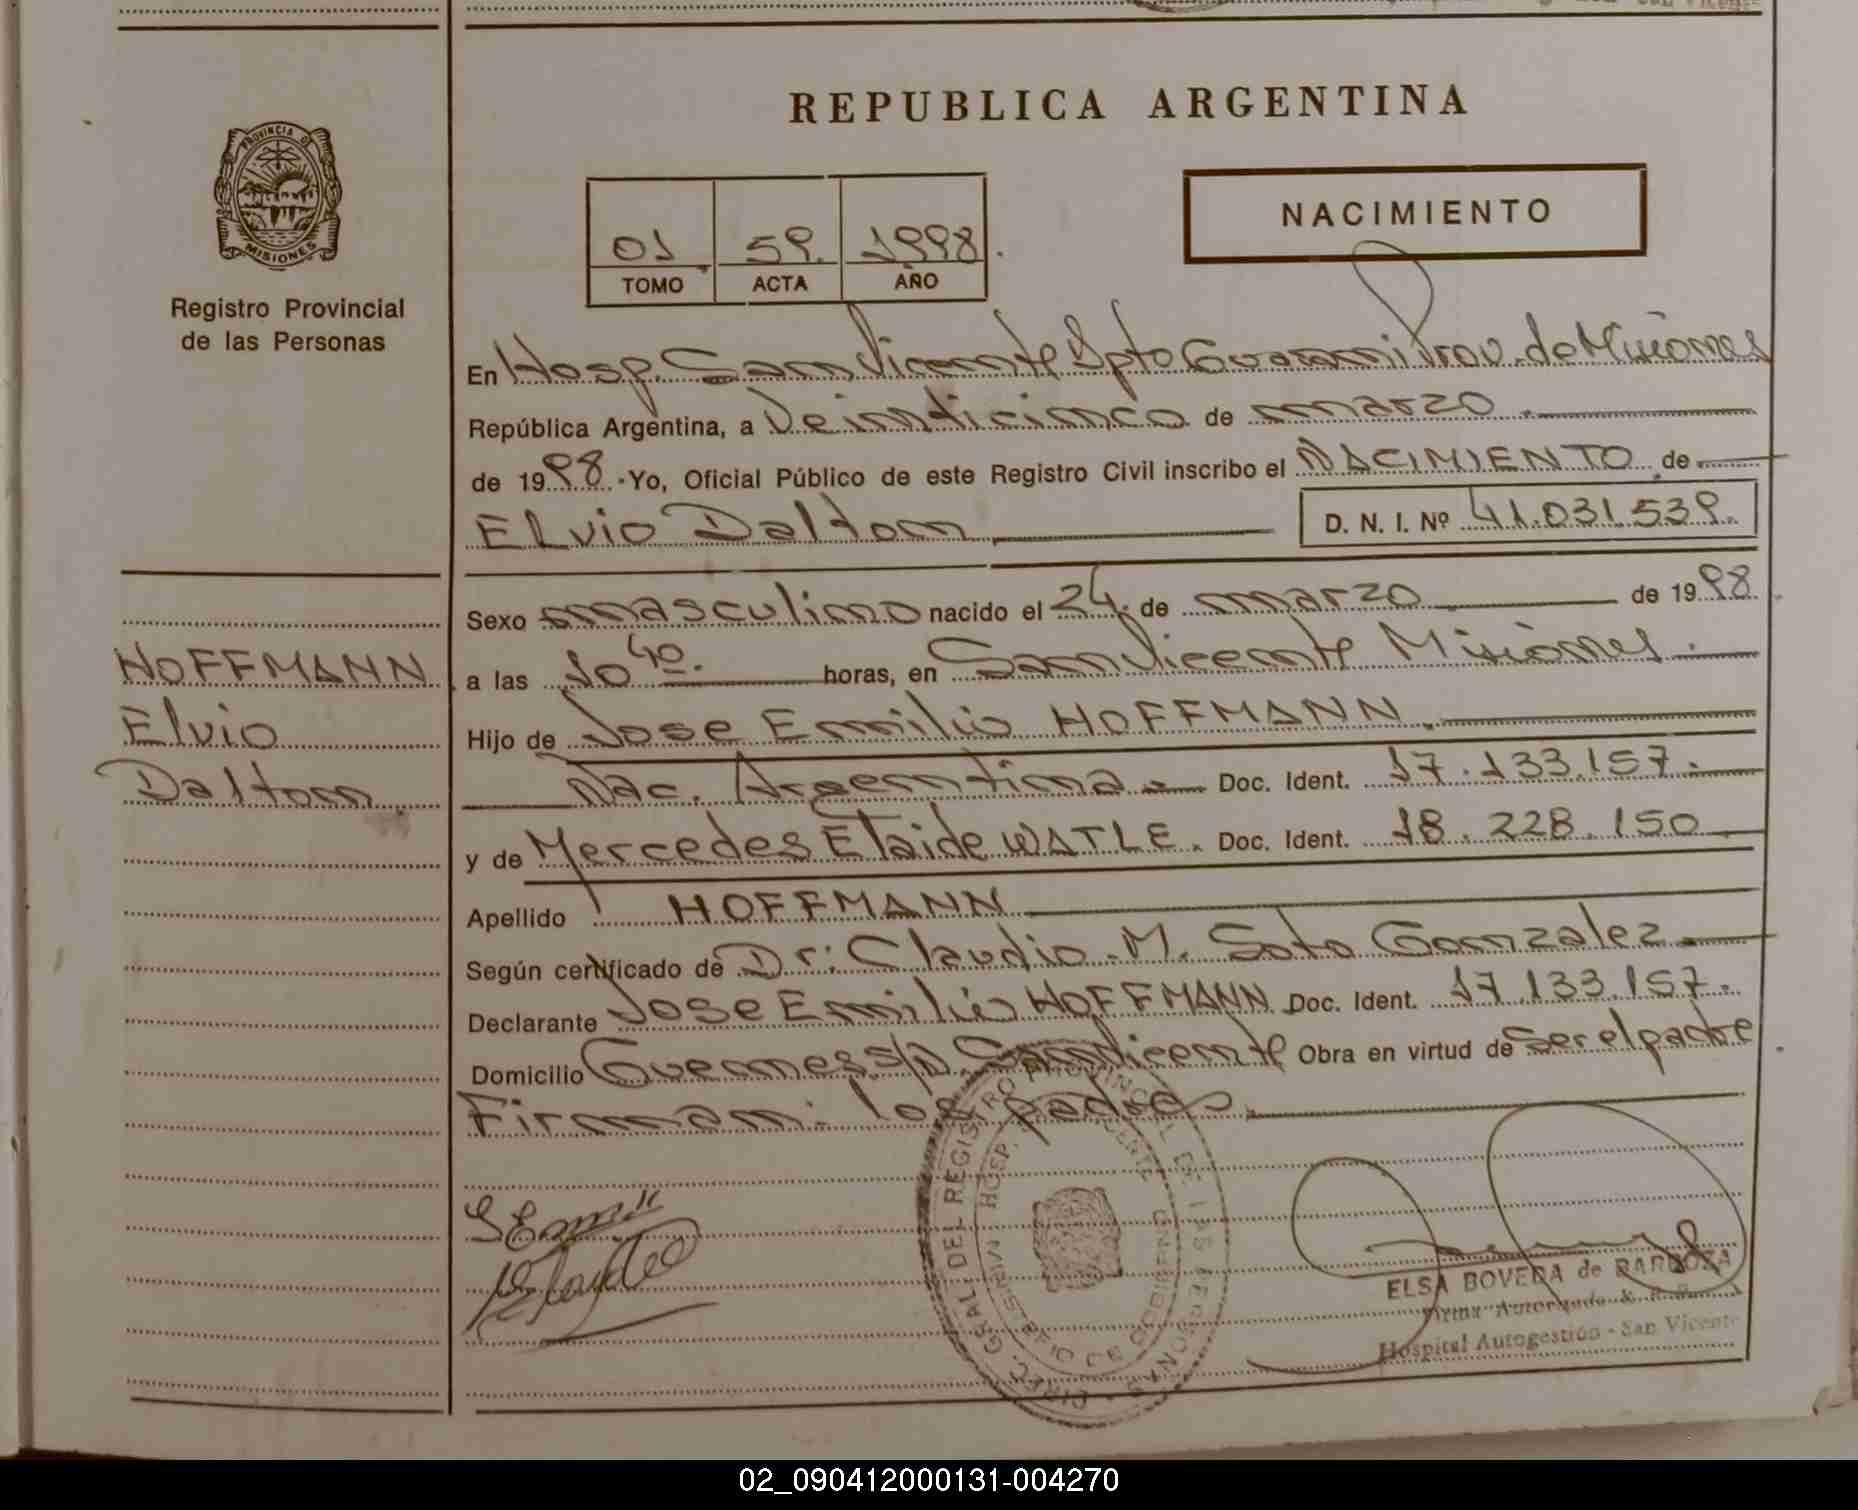 REPUBLICA ARGENTINA
PROVINCIA DE
MISIONES
Registro Provincial
de las Personas
01 59. 1998
TOMO ACTA AÑO
NACIMIENTO
En Hosp. San Vicente Dpto Guarani Prov. de Misiones
República Argentina, a Veinticinco de marzo.
de 1998.-Yo, Oficial Público de este Registro Civil inscribo el NACIMIENTO de
ELvio Dalton D. N. I. Nº 41.031.539.
Sexo masculino nacido el 24. de marzo de 1998.
a las 10 40. horas, en San Vicente Misiones.
Hijo de Jose Emilio HOFFMANN.
Nac. Argentina.- Doc. Ident. 17.133.157.
y de Mercedes Elaide WATLE. Doc. Ident. 18.228.150
Apellido HOFFMANN
Según certificado de Dr: Claudio. M. Soto Gonzalez
Declarante Jose Emilio HOFFMANN Doc. Ident. 17.133.157.
Domicilio Guemes s/n. San Vicente Obra en virtud de ser el padre
Firman: los padres.
HOFFMANN
Elvio
Dalton
DIREC. GRAL DEL REGISTRO PROVINCIAL DE LAS PERSONAS
HOSP. VICENTE
ELSA BOVEDA de BARBOZA
Firma Autorizada
Hospital Autogestión - San Vicente
02_090412000131-004270